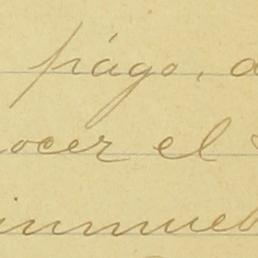 págo, a
ocer el
inmueb